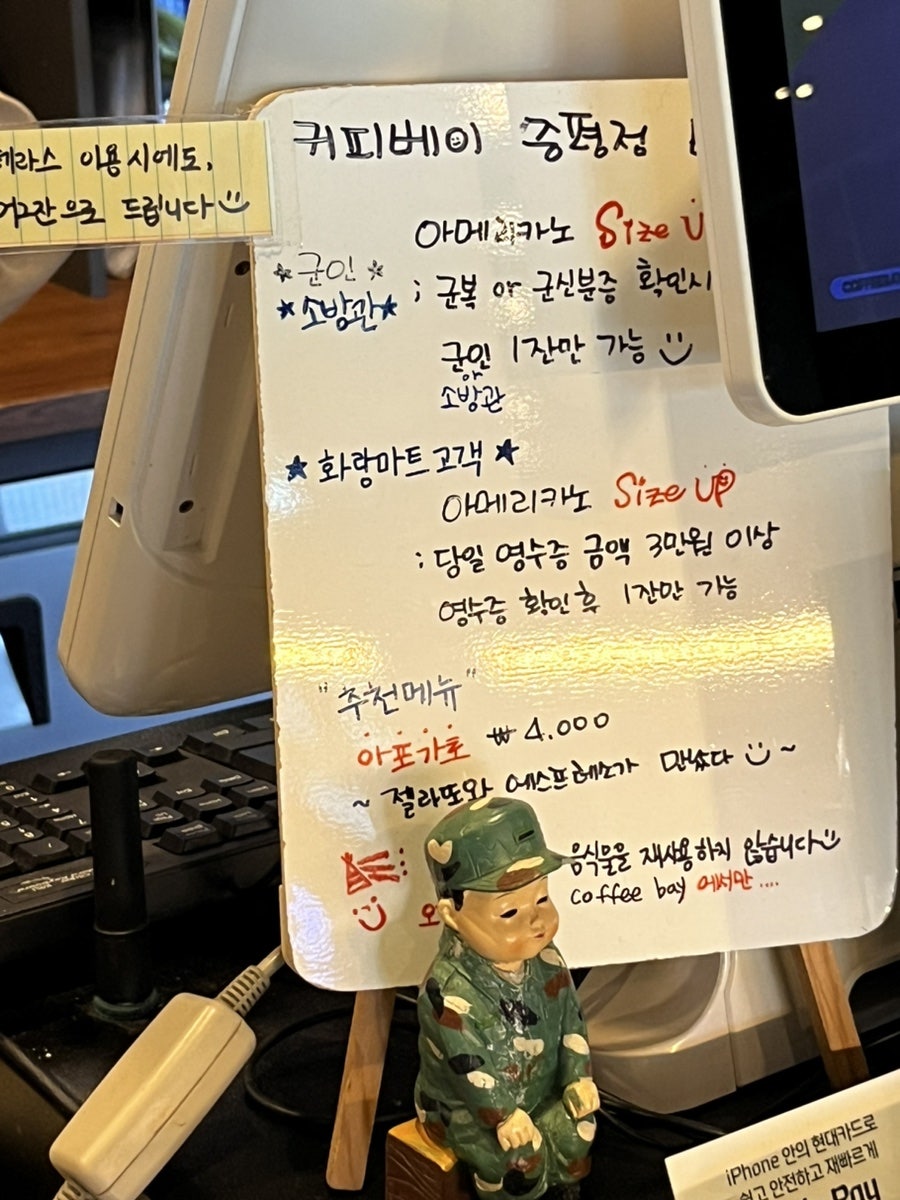 테라스 이용시에도,
드립니다
커피베이 증평점
아메리카노 Size U
☆군인☆
★소방관★
; 군복 or 군신분증 확인시
군인 1잔만 가능
or
소방관
★ 화랑마트고객 ★
아메리카노 Size UP
: 당일 영수증 금액 3만원 이상
영수증 확인후 1잔만 가능
"추천메뉴"
아포가토 ₩4.000
~ 젤라또와 에스프레소가 만났다 ~
음식물을 재사용하지 않습니다
오
coffee bay 에서만....
iPhone 안의 현대카드로
쉽고 안전하고 재빠르게
Pay